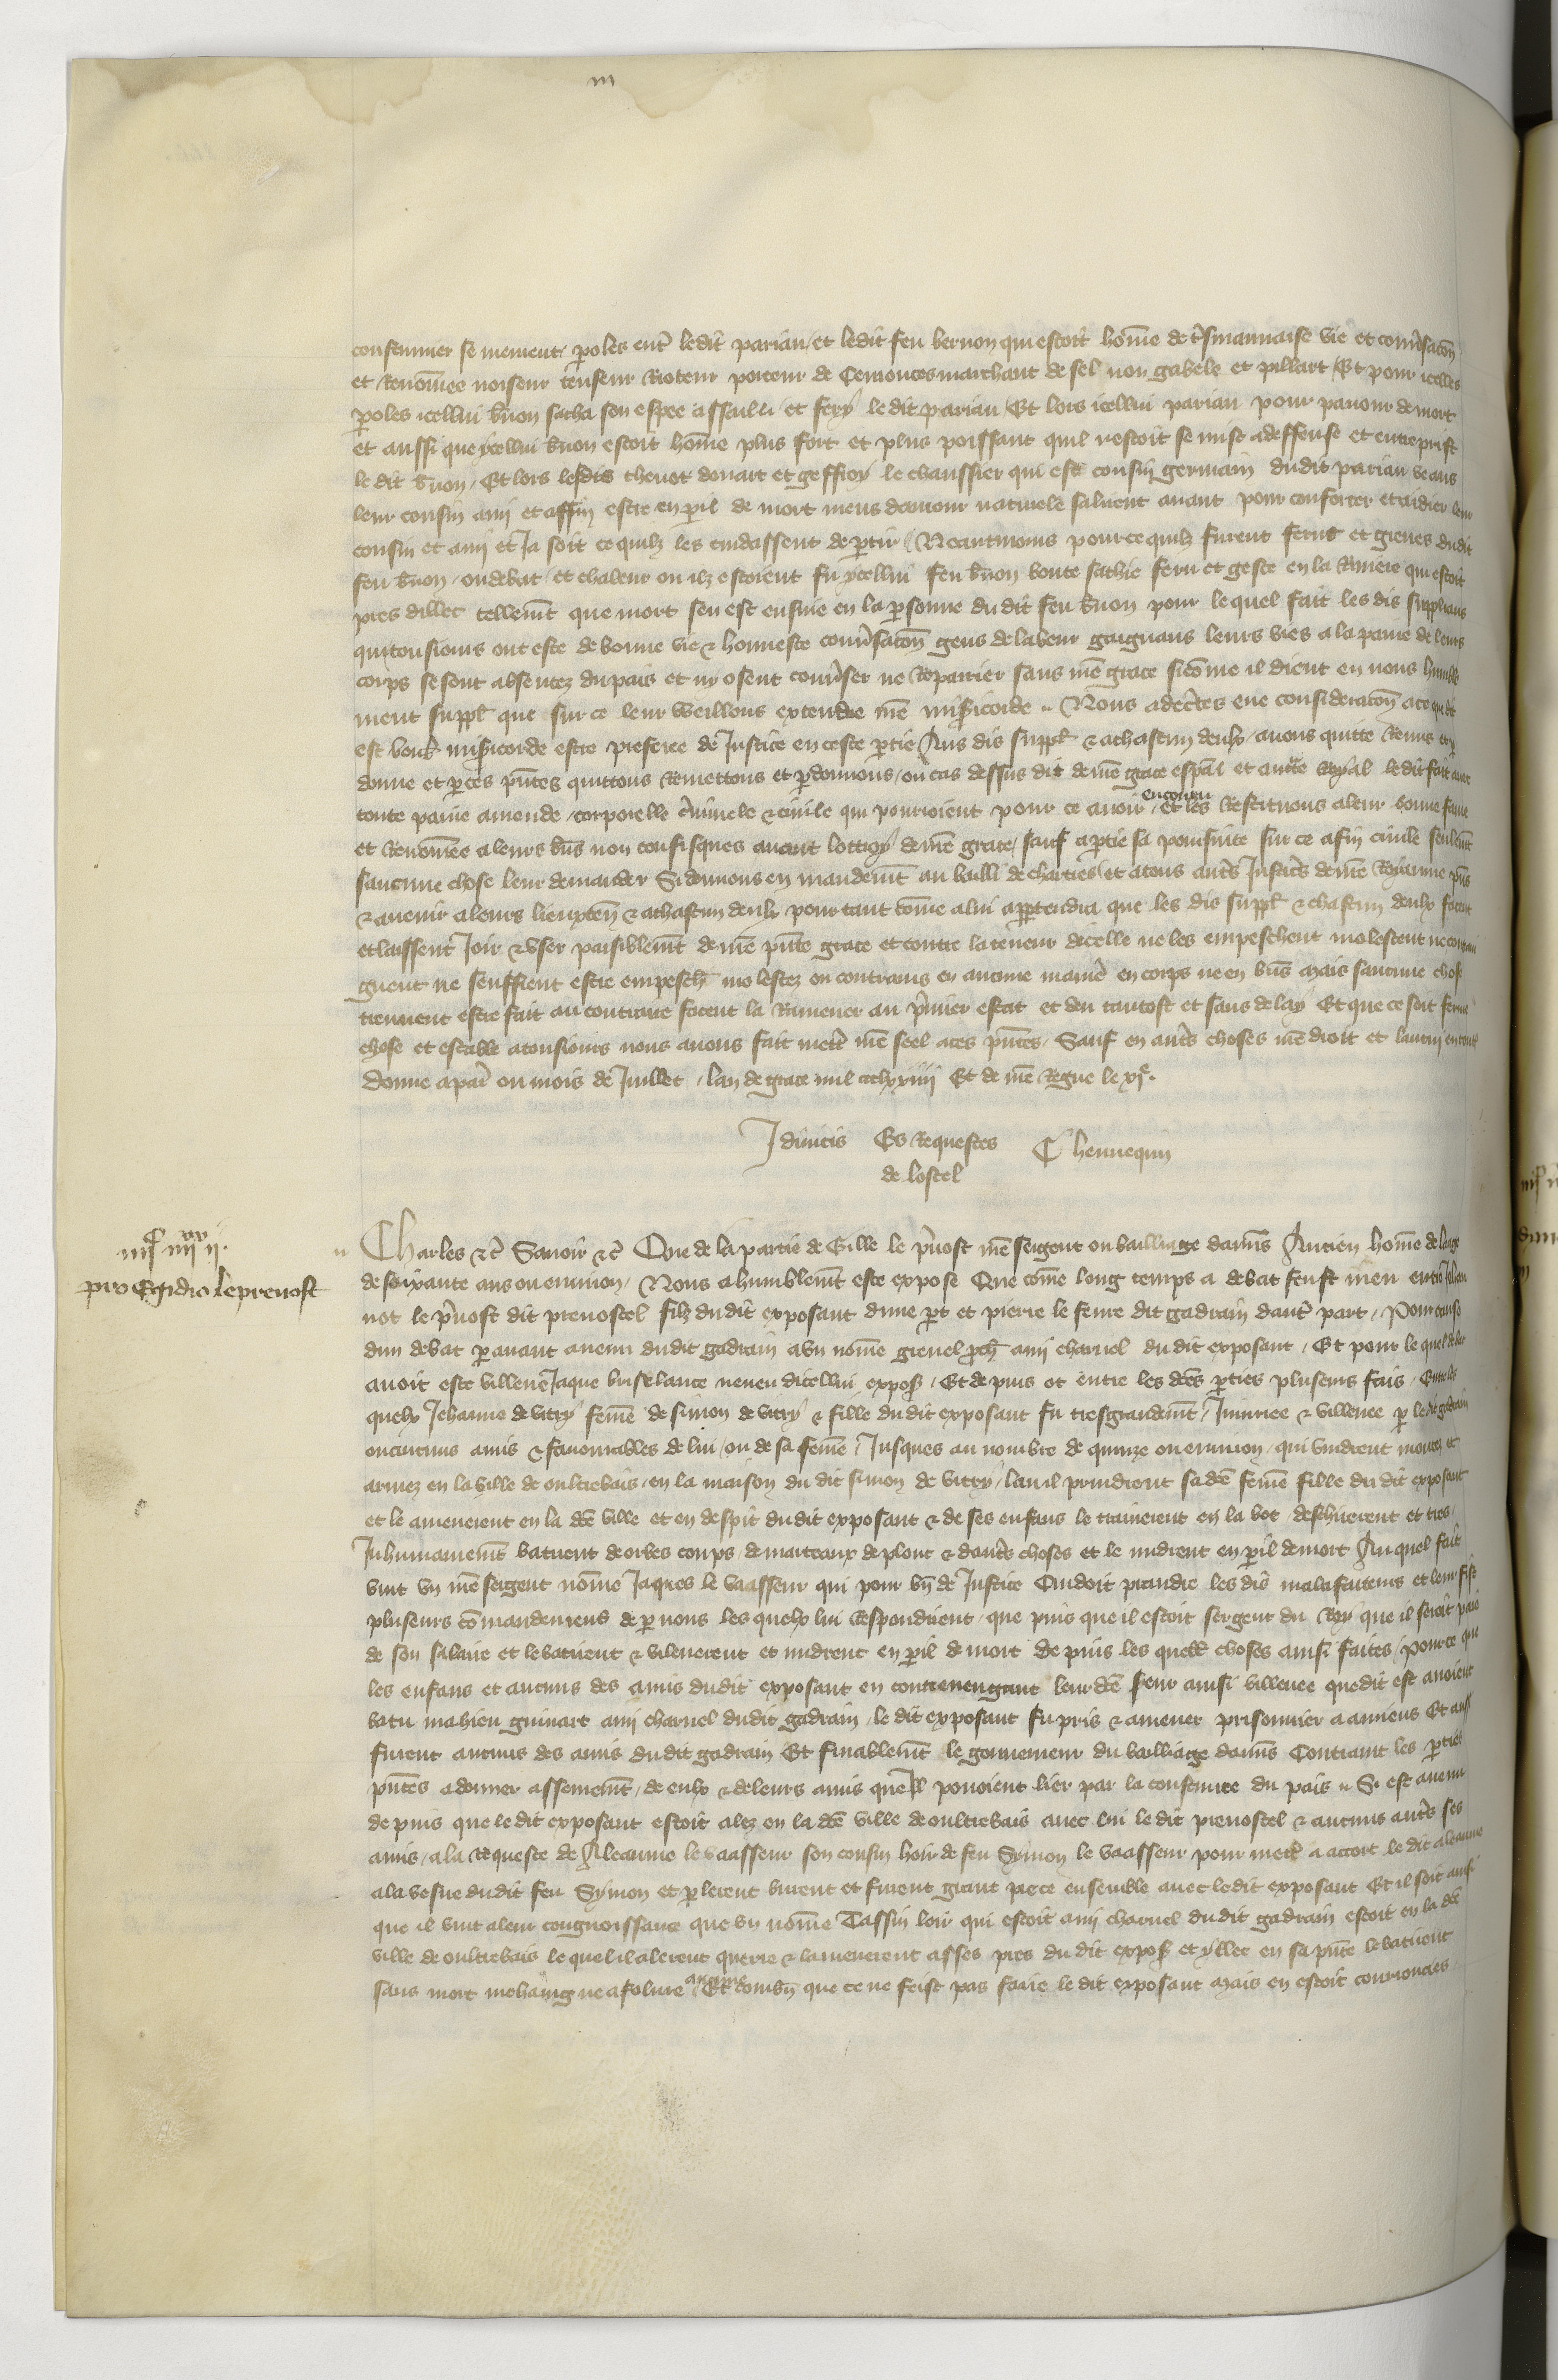 m
consummer se meurent paroles entre ledit parian et ledit feu bernon qui estoit homme de tresmauuaise vie et conuersacion
et Renommee noiseur tenseur Rioteur porteur de marchant de sel non gabele et pillart Et pour icelles
paroles icellui bernon sacha son espee assailli et fery le dit parian Et lors icellui parian pour paour de mort
et aussi que ycellui bernon estoit homme plus fort et plus poissant quil nestoit se mist a deffense et entreprist
le dit bernon Et lors lesdis theuot douart et geffroy le chaussier qui est cousin germain dudit parian veans
leur cousin ami et affin estre en peril de mort meus damour naturele saluent auant pour conforter et aidier leur
cousin et ami et Ja soit ce quilz les cuidassent departir Neantmoins pource quilz furent ferus et greues dudit
feu bernon ou debat et chaleur ou ilz estoient fu ycellui feu bernon boute sachie feru et gette en la Riuiere qui estoit
pres dillec tellement que mort sen est ensuie en la personne du dit feu bernon pour lequel fait les dis supplians
qui tousiours ont este de bonne vie & honneste conuersacion gens de labeur gaignans leurs vies a la paine de leurs
corps se sont absentez du pais et ny osent conuerser ne Repairier sans nostre grace sicomme il dient en nous humble
ment suppliant que sur ce leur veillons extendre nostre misericorde Nous adecertes eue consideracion a ce que dit
est voulans misericorde estre preferee de Justice en ceste partie Aus dis supplians & a chascun deulx auons quitte Remis et par
donne et par ces presentes quittons Remettons et pardonnons ou cas dessus dit de nostre grace especial et auctorite Royal ledit fait auec
toute paine amende corporelle criminele & ciuile qui pourroient pour ce auoir encouru et les Restituons a leur bonne fame
et Renommee a leurs biens non confisques auant lottroy de nostre grace sauf a partie sa poursuite sur ce a fin ciuile seulement
saucune chose leur demander Si donnons en mandement au bailli de chartres et a tous autres Justiciers de nostre Royaume presens
& auenir a leurs lieuxtenans & a chascun deulx pour tant comme a lui appartendra que les dis supplians & chascun deulx facent
et laissent Joir & vser paisiblement de nostre presente grace et contre la teneur dicelle ne les empeschent molestent ne contrain
gnent ne seuffrent estre empeschez molestez ou contrains en aucune maniere en corps ne en biens Mais saucune chose
treuuent estre fait au contraire facent la Ramener au premier estat et deu tantost et sans delay Et que ce soit ferme
chose et estable a tousiours nous auons fait mettre nostre seel a ces presentes Sauf en autres choses nostre droit et lautrui en toutes
Donne a paris ou mois de Juillet lan de grace mil ccclxxiiii Et de nostre Regne le xje.
Es Requestes Chennequin
de lostel
iiijc iiijxx ij.
pro Egidio le preuost
Charles &c Sauoir &c Que de la partie de Gille le preuost nostre sergent ou bailliage damiens Ancien homme de laage
de soixante ans ou enuiron Nous a humblement este expose Que comme long temps a debat feust meu entre Jehan
not le preuost dit preuostel filz du dit exposant dune part et pierre le feure dit gadrain dautre part Pour cause
dun debat parauant auenu du dit gadrain a vn nomme greuel proche ami charnel du dit exposant Et pour lequel debat
auoit este villene Jaque briselance neueu dicellui exposant Et depuis ot entre les dictes parties pluseurs fais Entre les
quelx Jehanne de vitry femme de simon de vitry & fille du dit exposant fu tresgrandement Iniuriee & villenee par ledit gadrain
ou aucuns amis & fauourables de lui ou de sa femme Jusques au nombre de quinze ou enuiron qui vindrent montez et
armez en la ville de oultrebais en la maison du dit simon de vitry la ou il prindrent sadicte femme fille du dit exposant
et le amenerent en la dicte ville et en despit dudit exposant & de ses enfans le trainerent en la boe deschirerent et tres
Inhumainement batirent de orbes coups de marteaux de plonc & dautres choses et le midrent en peril de mort Auquel fait
vint vn nostre sergent nomme Jaques le vaasseur qui pour bien de Justice Cuidoit prendre les dis malfaiteurs et leur fist
pluseurs commandemens de par nous les quelx lui Respondirent que puis que il estoit sergent du Roy que il seroit paie
de son salaire et le batirent & vilenerent et midrent en peril de mort Depuis les quelles choses ainsi faites pource que
les enfans et aucuns des amis dudit exposant en contreuengant leur dicte seur ainsi villenee que dit est auoient
batu mahieu guinart ami charnel dudit gadrain le dit exposant fu pris & amener prisonnier a amiens Et aussi
furent aucuns des amis du dit gadrain Et finablement le gouuerneur du bailliage damiens Contraint les parties
presentes a donner asseurement de eulx & de leurs amis quell pouoient lier par la coustume du pais Si est auenu
depuis que le dit exposant estoit alez en la dicte ville de oultrebais auec lui le dit preuostel & aucuns autres ses
amis a la Requeste de Aleaume le vaasseur son cousin hoir de feu Symon le vaasseur pour mettre a accort le dit aleaume
a la vefue dudit feu Symon et parlerent burent et furent grant piece ensemble auec ledit exposant Et il soit ainsi
que il vint a leur congnoissance que vn nomme Tassin loir qui estoit ami charnel dudit gadrain estoit en la dicte
ville de oultrebais lequel il alerent querre & lamenerent asses pres du dit exposant et yllec en sa presence le batirent
sans mort mehaing ne afolure aucune Et combien que ce ne feist pas faire le dit exposant Mais en estoit courroucies